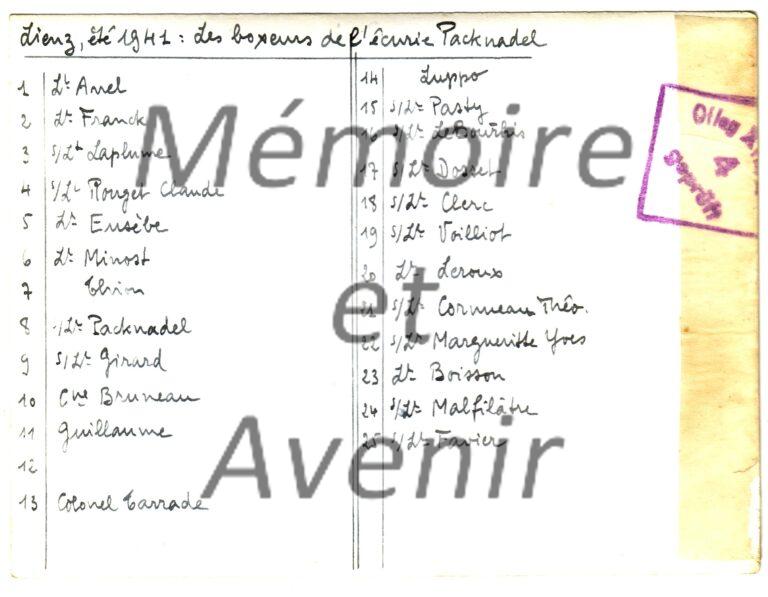 Lienz, été 1941 : Les boxeurs de l'écurie Packnadel
1 Lt Anel
2 Lt Franck
3 s/Lt Laplume
4 s/Lt Rouget Claude
5 Lt Eusèbe
6 Lt Minost
7 Thion
8 s/Lt Packnadel
9 s/Lt Girard
10 Cne Bruneau
11 Guillaume
12
13 Colonel Tarrade
14 Luppo
15 s/Lt Pasty
16 s/Lt Le Bourhis
17 s/Lt
18 s/Lt Clerc
19 s/Lt Voilliot
20 Lt Leroux
21 s/Lt Cornuneau Théo.
22 s/Lt Margueritte Yves
23 Lt Boisson
24 s/Lt Malfilâtre
25 s/Lt Favier
Oflag
4
geprüft
Mémoire
et
Avenir